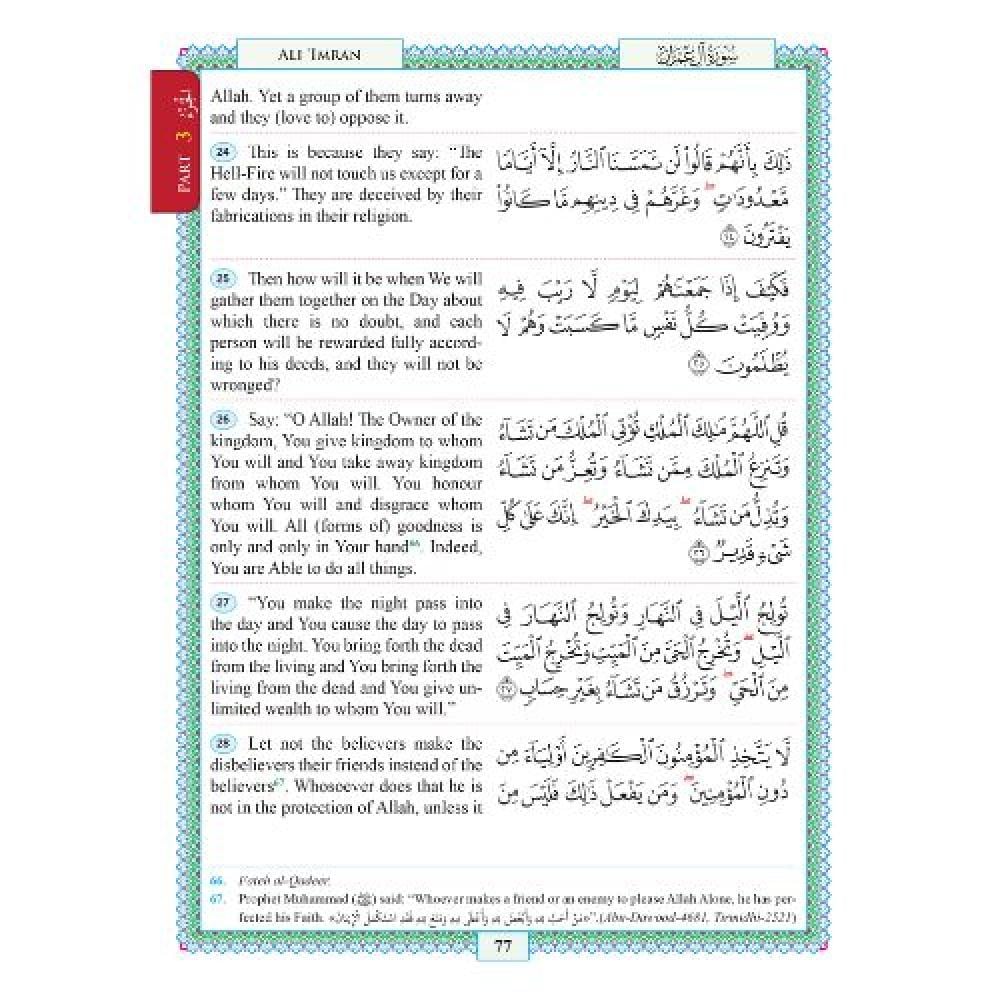 ALI 'IMRAN
سُورَةُ آلِ عِمْرَان
الجزء
PART 3
Allah. Yet a group of them turns away
and they (love to) oppose it.
24 This is because they say: “The
Hell-Fire will not touch us except for a
few days.” They are deceived by their
fabrications in their religion.
ذَٰلِكَ بِأَنَّهُمْ قَالُوا۟ لَن تَمَسَّنَا ٱلنَّارُ إِلَّآ أَيَّامًا
مَّعْدُودَٰتٍ ۖ وَغَرَّهُمْ فِى دِينِهِم مَّا كَانُوا۟
يَفْتَرُونَ ٢٤
25 Then how will it be when We will
gather them together on the Day about
which there is no doubt, and each
person will be rewarded fully accord-
ing to his deeds, and they will not be
wronged?
فَكَيْفَ إِذَا جَمَعْنَٰهُمْ لِيَوْمٍ لَّا رَيْبَ فِيهِ
وَوُفِّيَتْ كُلُّ نَفْسٍ مَّا كَسَبَتْ وَهُمْ لَا
يُظْلَمُونَ ٢٥
26 Say: “O Allah! The Owner of the
kingdom, You give kingdom to whom
You will and You take away kingdom
from whom You will. You honour
whom You will and disgrace whom
You will. All (forms of) goodness is
only and only in Your hand66. Indeed,
You are Able to do all things.
قُلِ ٱللَّهُمَّ مَٰلِكَ ٱلْمُلْكِ تُؤْتِى ٱلْمُلْكَ مَن تَشَآءُ
وَتَنزِعُ ٱلْمُلْكَ مِمَّن تَشَآءُ وَتُعِزُّ مَن تَشَآءُ
وَتُذِلُّ مَن تَشَآءُ ۖ بِيَدِكَ ٱلْخَيْرُ ۖ إِنَّكَ عَلَىٰ كُلِّ
شَىْءٍ قَدِيرٌ ٢٦
27 “You make the night pass into
the day and You cause the day to pass
into the night. You bring forth the dead
from the living and You bring forth the
living from the dead and You give un-
limited wealth to whom You will.”
تُولِجُ ٱلَّيْلَ فِى ٱلنَّهَارِ وَتُولِجُ ٱلنَّهَارَ فِى
ٱلَّيْلِ ۖ وَتُخْرِجُ ٱلْحَىَّ مِنَ ٱلْمَيِّتِ وَتُخْرِجُ ٱلْمَيِّتَ
مِنَ ٱلْحَىِّ ۖ وَتَرْزُقُ مَن تَشَآءُ بِغَيْرِ حِسَابٍ ٢٧
28 Let not the believers make the
disbelievers their friends instead of the
believers67. Whosoever does that he is
not in the protection of Allah, unless it
لَّا يَتَّخِذِ ٱلْمُؤْمِنُونَ ٱلْكَٰفِرِينَ أَوْلِيَآءَ مِن
دُونِ ٱلْمُؤْمِنِينَ ۖ وَمَن يَفْعَلْ ذَٰلِكَ فَلَيْسَ مِنَ
66. Fateh al-Qadeer.
67. Prophet Muhammad (ﷺ) said: “Whoever makes a friend or an enemy to please Allah Alone, he has per-
fected his Faith. «مَنْ أَحَبَّ لِلهِ وَأَبْغَضَ لِلهِ وَأَعْطَى لِلهِ وَمَنَعَ لِلهِ فَقَدِ اسْتَكْمَلَ الْإِيمَانَ»”.(Abu-Dawood-4681, Tirmidhi-2521)
77